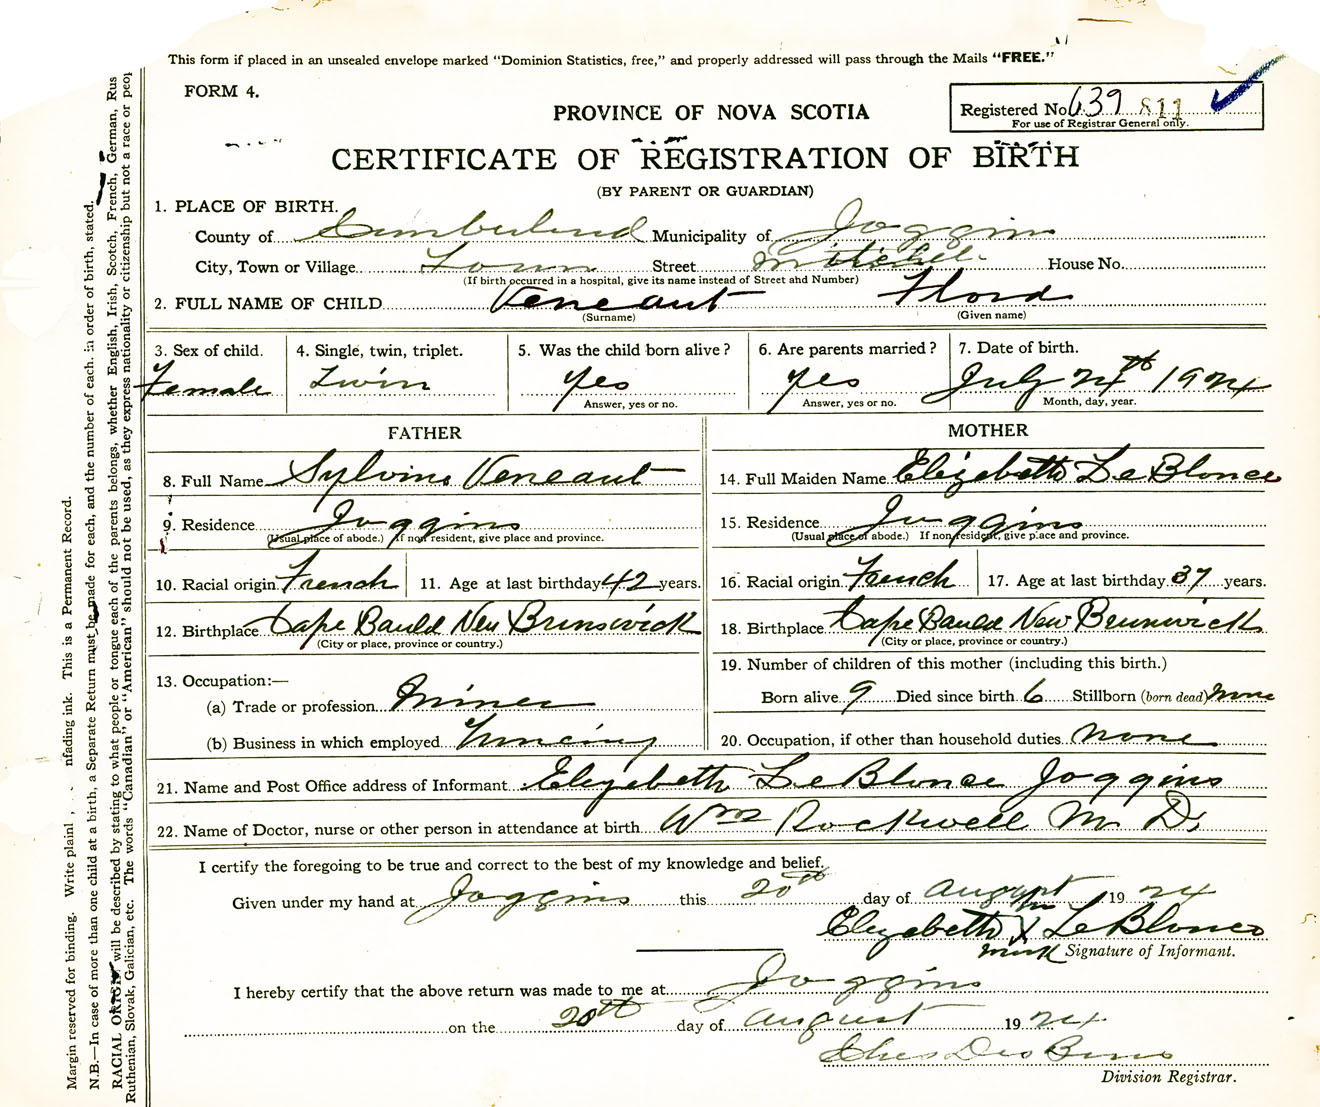 This form if placed in an unsealed envelope marked "Dominion Statistics, free," and properly addressed will pass through the Mails "FREE."
FORM 4.
Registered No. 639 811
For use of Registrar General only.
PROVINCE OF NOVA SCOTIA
CERTIFICATE OF REGISTRATION OF BIRTH
(BY PARENT OR GUARDIAN)
1. PLACE OF BIRTH.
County of Cumberland Municipality of Joggins
City, Town or Village Town Street Mitchell House No.
(If birth occurred in a hospital, give its name instead of Street and Number)
2. FULL NAME OF CHILD Veneaut Flord
(Surname) (Given name)
3. Sex of child. 4. Single, twin, triplet. 5. Was the child born alive? 6. Are parents married? 7. Date of birth.
Female Twin yes yes July 24th 1924
Answer, yes or no. Answer, yes or no. Month, day, year.
FATHER MOTHER
8. Full Name Sylvins Veneaut 14. Full Maiden Name Elizabeth LeBlonce
9. Residence Joggins 15. Residence Joggins
(Usual place of abode.) If non resident, give place and province. (Usual place of abode.) If non resident, give place and province.
10. Racial origin French 11. Age at last birthday 42 years. 16. Racial origin French 17. Age at last birthday 37 years.
12. Birthplace Cape Bauld New Brunswick 18. Birthplace Cape Bauld New Brunwick
(City or place, province or country.) (City or place, province or country.)
13. Occupation:— 19. Number of children of this mother (including this birth.)
(a) Trade or profession Miner Born alive 9 Died since birth 6 Stillborn (born dead) none
(b) Business in which employed 20. Occupation, if other than household duties none
21. Name and Post Office address of Informant Elizebeth LeBlonce Joggins
22. Name of Doctor, nurse or other person in attendance at birth Wm Rockwell M. D.
I certify the foregoing to be true and correct to the best of my knowledge and belief.
Given under my hand at Joggins this 20th day of August 1924
Elizabeth X LeBlonce
mark Signature of Informant.
I hereby certify that the above return was made to me at Joggins
on the 20th day of August 1924
Division Registrar.
Margin reserved for binding. Write plainl , nfading ink. This is a Permanent Record.
N.B.—In case of more than one child at a birth, a Separate Return must be made for each, and the number of each. in order of birth, stated.
RACIAL ORIGIN will be described by stating to what people or tongue each of the parents belongs, whether English, Irish, Scotch, French, German, Rus
Ruthenian, Slovak, Galician, etc. The words "Canadian" or "American" should not be used, as they express nationality or citizenship but not a race or peop